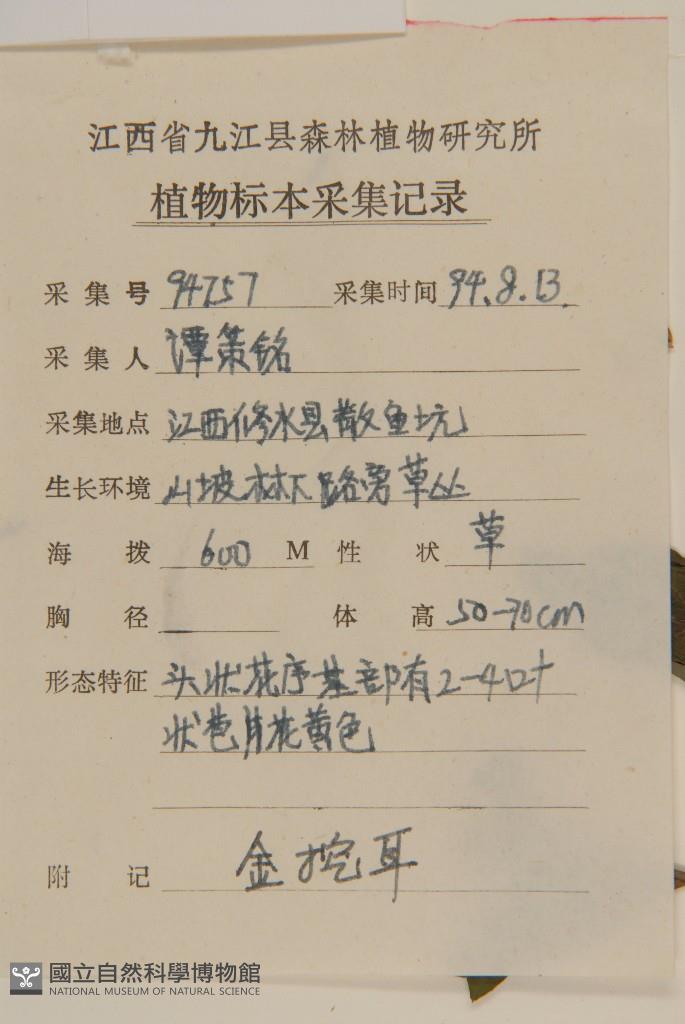 江西省九江县森林植物研究所
植物标本采集记录
采集号 94757 采集时间 94.8.13.
采集人 谭策铭
采集地点 江西修水县散鱼坑
生长环境 山坡林下路旁草丛
海拨 600 M 性状 草
胸径 体高 50-70cm
形态特征 头状花序基部有2-4叶
状苞片花黄色
附记 金挖耳
國立自然科學博物館
NATIONAL MUSEUM OF NATURAL SCIENCE